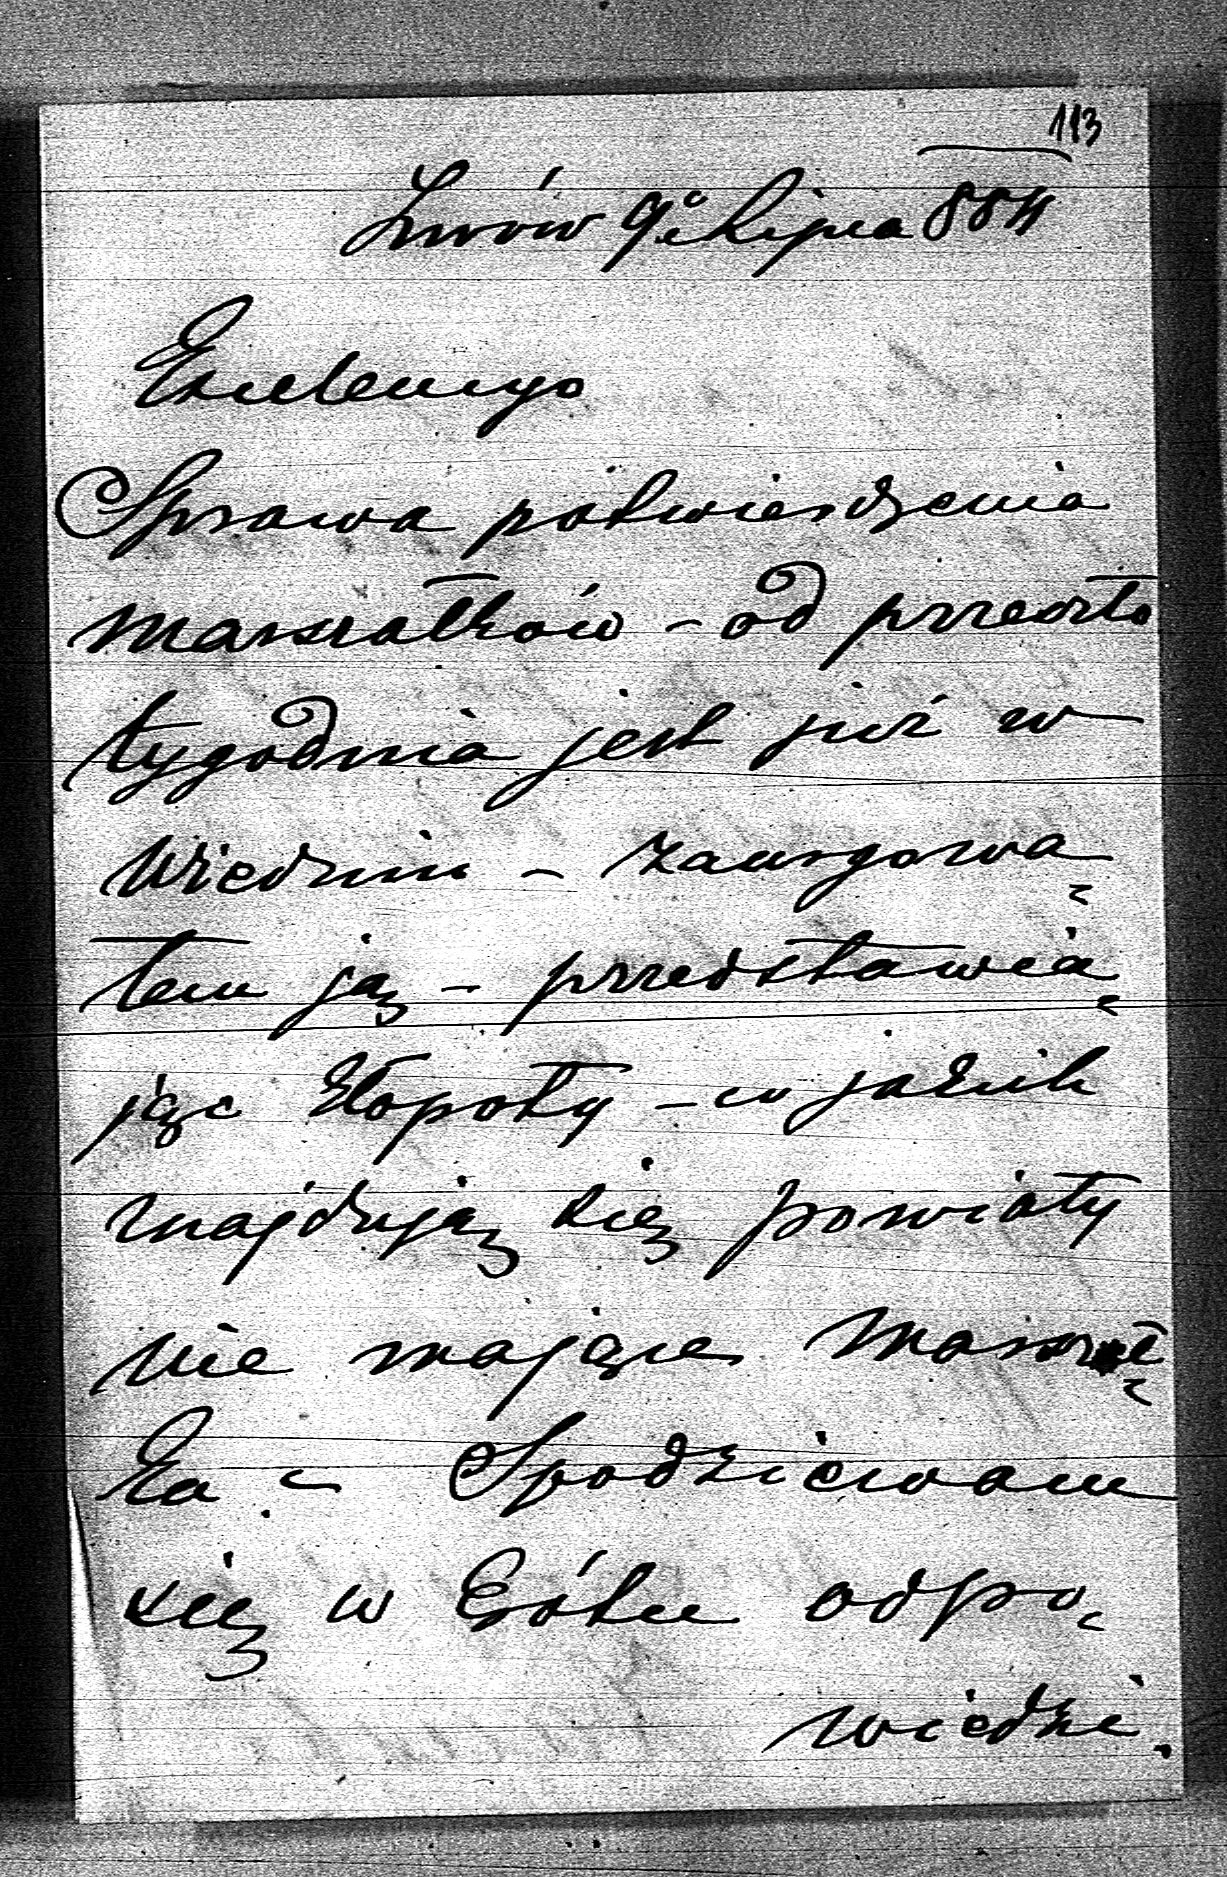 113
Lwów 9° Lipca 884
Excelencyo
Sprawa potwierdzenia
marszałków - od przeszło
tygodnia jest już w
Wiedniu - zaurgowa
łem ją - przedstawia
jąc kłopoty - w jakich
znajdują się powiaty
nie mające Marszał
ka - Spodziewam
się w krótce odpo
wiedzi.